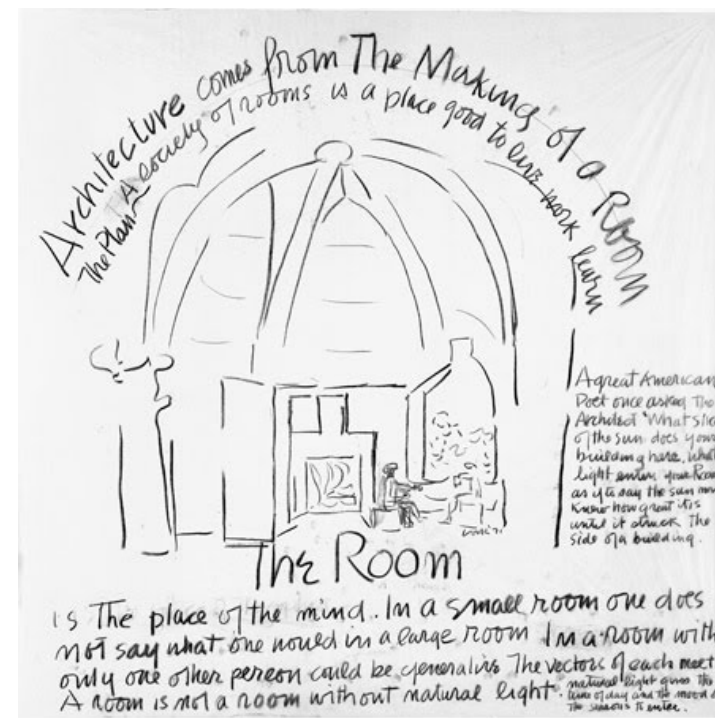 Architecture comes from The Making of a Room
The Plan – A society of rooms is a place good to live work learn
A great American
Poet once asked The
Architect 'What slic
of the sun does your
building have, what
light enters your Room
as if to say the sun nev
Knew how great it is
until it struck The
side of a building.
The Room
is The place of the mind. In a small room one does
not say what one would in a large room In a room with
only one other person could be generative The vectors of each meet
A room is not a room without natural light.
natural light gives the
time of day and the mood o
The seasons to enter.